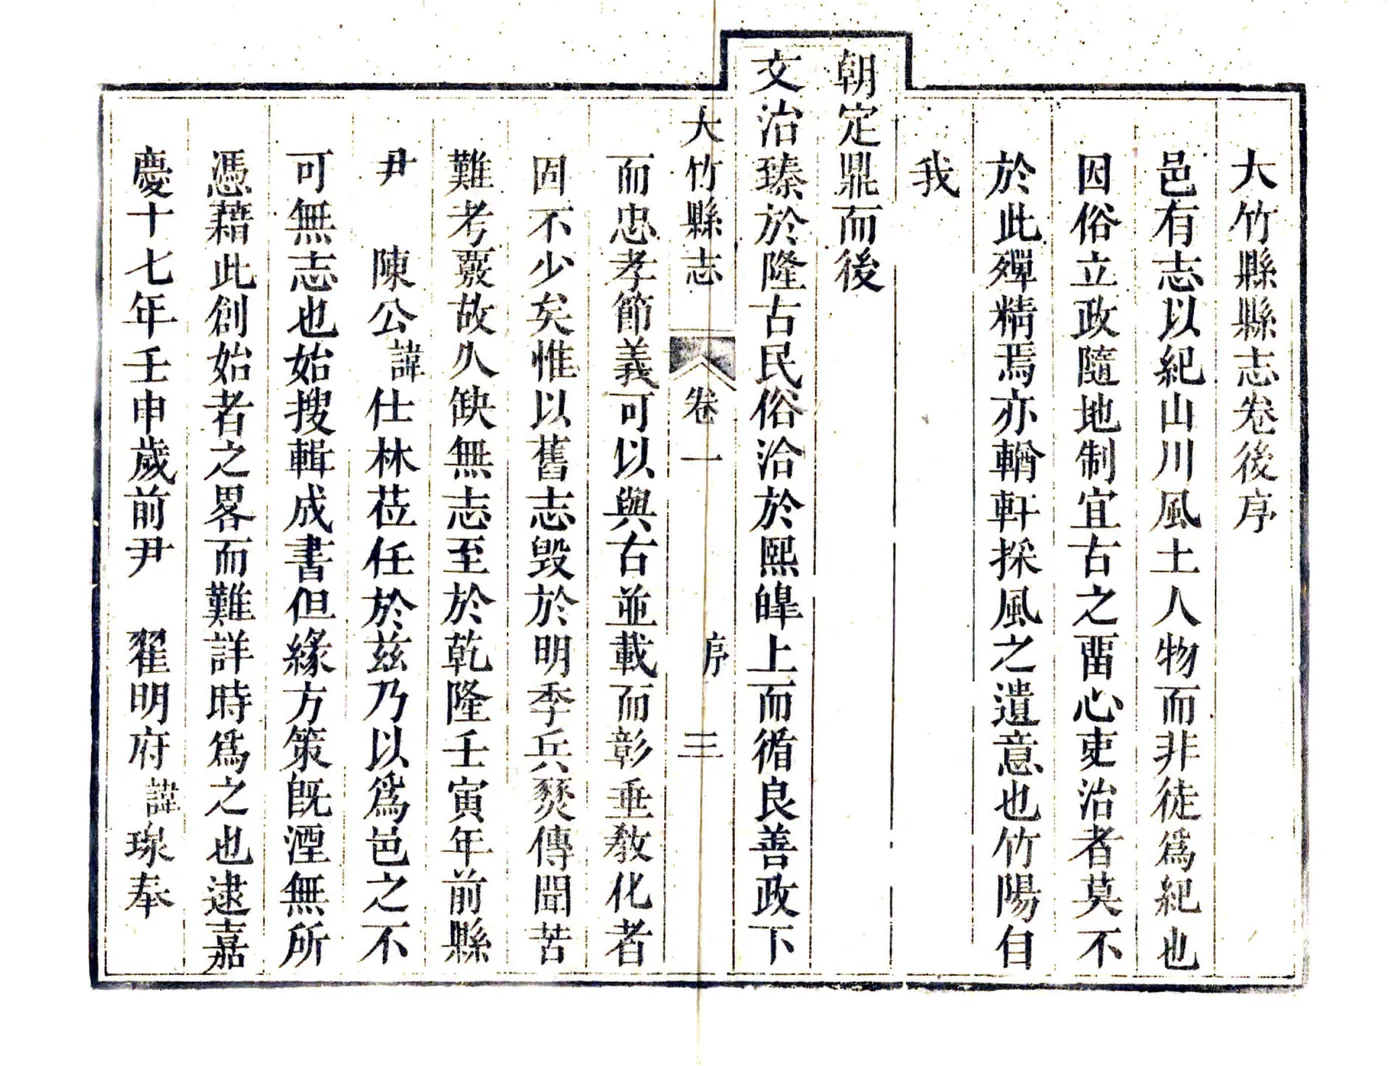 大竹縣縣志卷後序
邑有志以紀山川風土人物而非徒爲紀也
因俗立政隨地制宜古之畱心吏治者莫不
於此殫精焉亦輶軒採風之遺意也竹陽自
我
朝定鼎而後
文治臻於隆古民俗洽於熙皞上而循良善政下
大竹縣志 卷一 序 三
而忠孝節義可以與古並載而彰垂教化者
固不少矣惟以舊志毁於明季兵燹傳聞苦
難考覈故久缺無志至於乾隆壬寅年前縣
尹 陳公諱仕林莅任於兹乃以爲邑之不
可無志也始搜輯成書但緣方策旣湮無所
憑藉此創始者之畧而難詳時爲之也逮嘉
慶十七年壬申歲前尹 翟明府諱琭奉